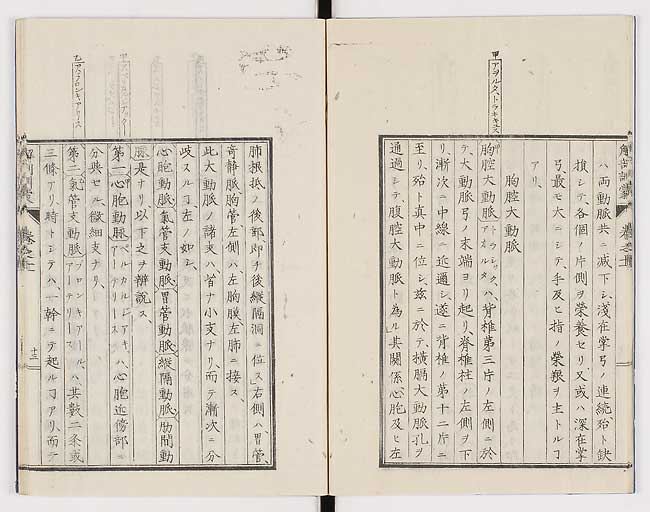 甲アヲルタ、トラキキス
ハ両動脈共ニ減下シ浅在掌弓ノ連続殆ト鈌
損シテ各個ノ片側ヲ榮養セリ又或ハ深在掌
弓最モ大ニシテ手及ヒ指ノ榮養ヲ主トルコ
アリ、
胸腔大動脈
胸腔大動脈ハ脊椎第三片ノ左側ニ於
テ大動脈弓ノ末端ヨリ起リ脊椎柱ノ左側ヲ下
リ漸次ニ中線ニ近逼シ遂ニ脊椎ノ第十二片ニ
至リ殆ト真中ニ位シ茲ニ於テ横膈大動脈孔ヲ
通過シテ腹腔大動脈ト為ル其関係心胞及ヒ左
解剖訓蒙
肺根抵ノ後部即チ後縦隔洞ニ位ス右側ハ胃管、
奇静脈胸管左側ハ左胸膜左肺ニ接ス、
此大動脈ノ諸支ハ皆ナ小支ナリ而テ漸次ニ分
岐スルコ左ノ如シ、
心胞動脈氣管支動脈胃管動脈縦隔動脈肋間動
脈是ナリ以下之ヲ辨説ス、
第一心胞動脉ハ心胞近傍部ニ
分與セル微細支ナリ、
第二氣管支動脈ハ其数二条或
三條アリ時トシテハ一幹ニテ起ルコアリ而テ
十三